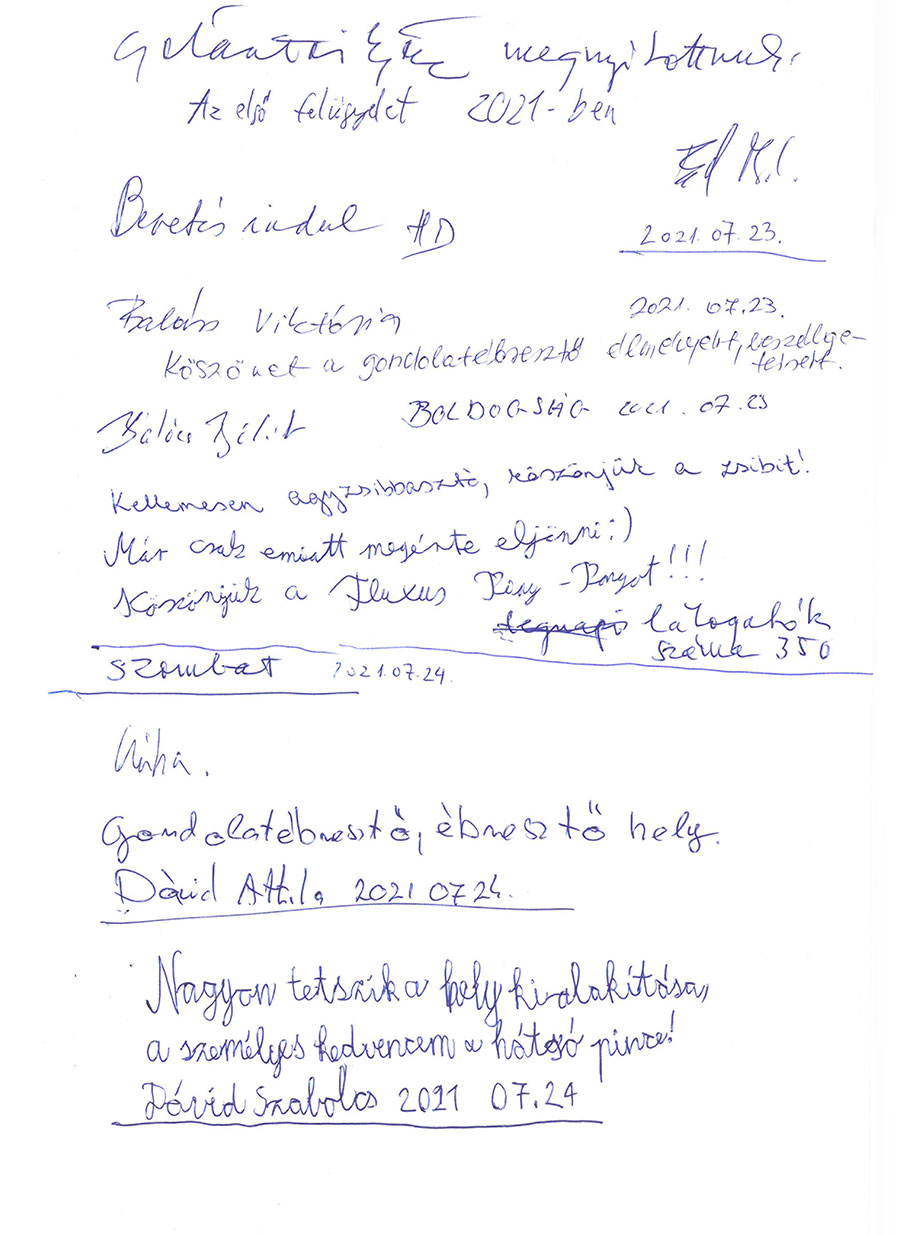 megnyitottunk.
Az első felügyelet 2021-ben
2021.07.23.
HD
Balázs Viktória 2021.07.23.
Köszönet a gondolatébresztő élményért, beszélge-
tésért.
BOLDOGSÁG 2021.07.23
Kellemesen agyzsibbasztó, köszönjük a zsibit!
Már csak emiatt megérte eljönni :)
Köszönjük a Fluxus Ping-Pongot!!!
látogatók
száma 350
szombat 2021.07.24.
Gondolatébresztő, ébresztő hely.
Dávid Attila 2021 07 24.
Nagyon tetszik a hely kialakítása,
a személyes kedvencem a hátsó pince!
Dávid Szabolcs 2021 07.24